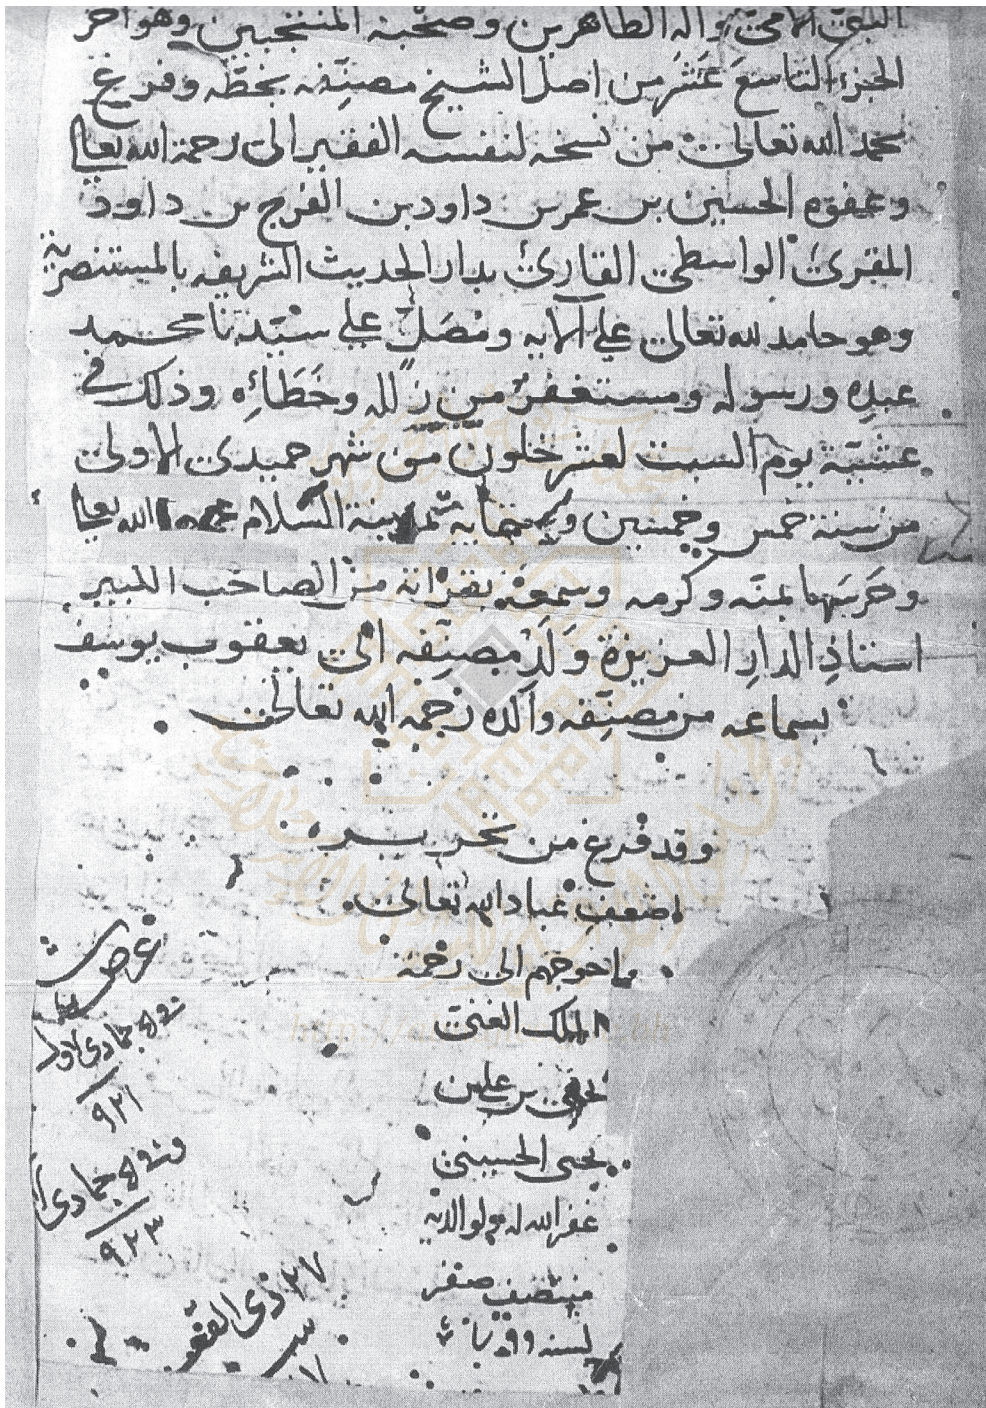 النبي الامي واله الطاهرين وصحبه المنتخبين وهو اخر
الجزء التاسع عشر من اصل الشيخ مصنفه بخطه وفرغ
بحمد الله تعالى من نسخه لنفسه الفقير الى رحمة الله تعالى
وعفوه الحسين بن عمر بن داود بن الفرج بن داود
المقرئ الواسطي القارئ بدار الحديث الشريفه بالمستنصرية
وهو حامد لله تعالى على آلايه ومصل على سيدنا محمد
عبده ورسوله ومستغفر من زلله وخطائه وذلك في
عشية يوم السبت لعشر خلون من شهر جميدى الاولى
من سنة خمس وخمسين وستماية بمدينة السلام الله تعالى
وحرسها بمنه وكرمه وسمعه بقراته من الصاحب الكبير
استاذ الدار العزيزة ولد مصنفه ابي يعقوب يوسف
بسماعه من مصنفه والده رحمه الله تعالى
وقد فرغ من تحريره
اضعف عباد الله تعالى
واحوجهم الى رحمة
الملك الغني
بن علي بن
يحيى الحسيني
غفر الله له ولوالديه
منتصف صفر
لسنه
عرض
جمادى اول
٩٢١
جمادى
٩٢٣
٢٧ ذى القعده